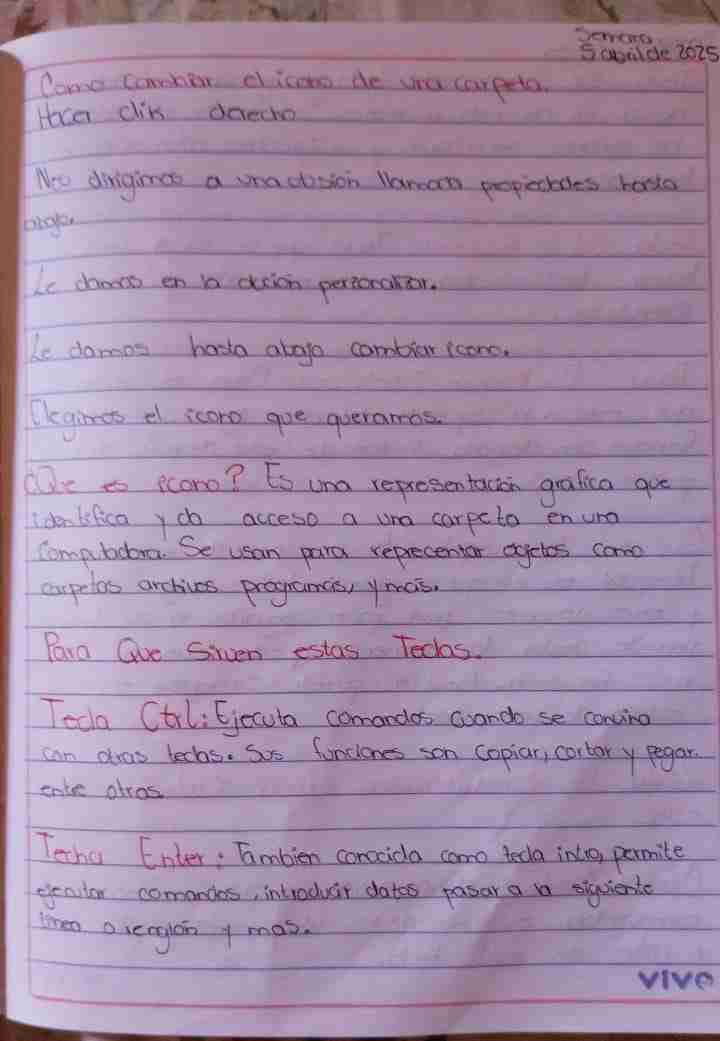 Semana
5 abril de 2025
Como cambiar el icono de una carpeta.
Hacer clik derecho
Nos dirigimos a una obsion llamada propiedades hasta
abajo.
Le damos en la occión perzonalizar.
Le damos hasta abajo cambiar icono.
Elegimos el icono que queramos.
¿Que es icono? Es una representación gráfica que
identifica y da acceso a una carpeta en una
Computadora. Se usan para representar objetos como
carpetas archivos programas, y más.
Para Que Sirven estas Teclas.
Tecla Ctrl: Ejecuta comandos Cuando se convina
con otras teclas. Sus funciones son copiar, cortar y pegar.
entre otros
Techa Enter: Tambien conocida como tecla intro, permite
ejecutar comandos, introducir datos pasar a la siguiente
linea o renglón y mas.
vivo